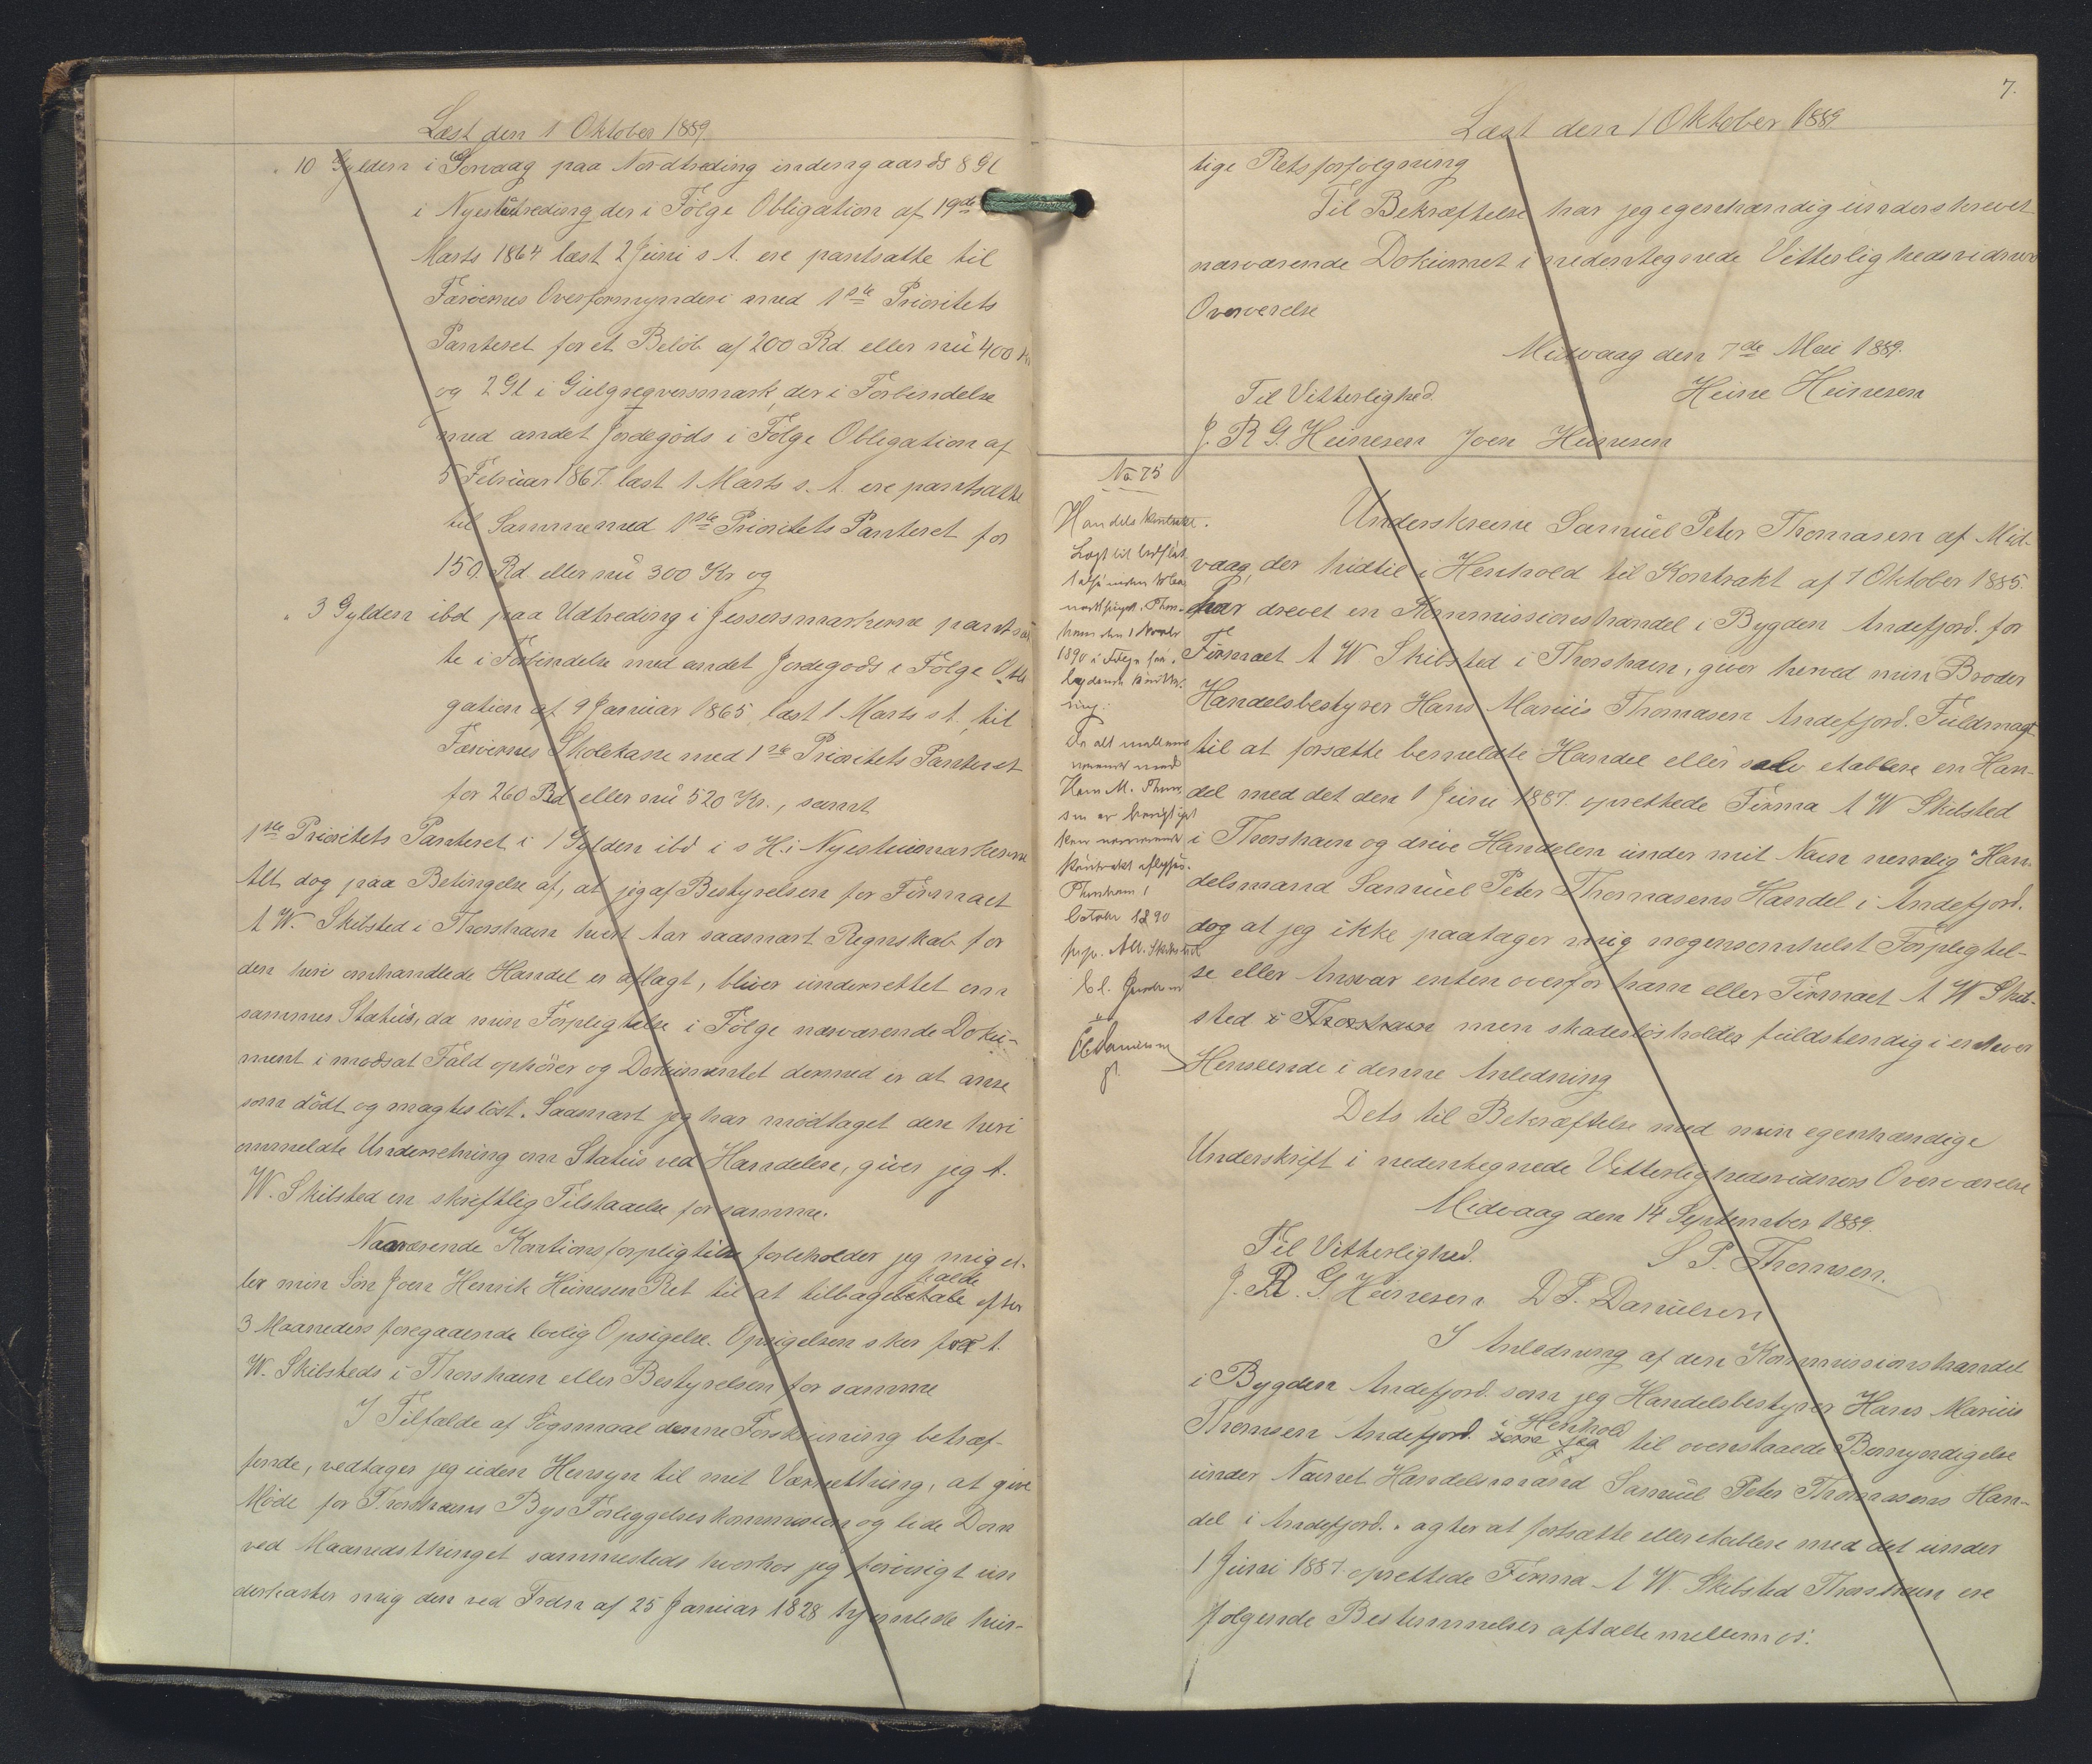 Læst den 1 Oktober 1889
10 Gylden i Sorvaag paa Nordtreding indengaards 8 Gl
i Nyestutreding der i Følge Obligation af 19de
Marts 1864 læst 2 Juni s A. ere pantsatte til
Færøernes Overformynderi med 1ste Prioritets
Panteret for et Beløb af 200 Rd. eller nu 400 Kr
og 2 Gl i der i Forbindelse
med andet Jordegods i Følge Obligation af
5 Februar 1867 læst 1 Marts s. A. ere pantsatte
til Samme med 1ste Prioritets Panteret for
150 Rd eller nu 300 Kr og
" 3 Gylden ibd paa Udtreding i Jessersmarkerne pantsat
te i Forbindelse med andet Jordegods i Følge Obli
gation af 9 Januar 1865, læst 1 Marts s A, til
Færøernes Skolekasse med 1ste Prioritets Panteret
for 260 Rd eller nu 520 Kr., samt
1ste Prioritets Panteret i 1 Gylden ibd i s H. i Nyestuimarkerne
Alt dog paa Betingelse af, at jeg af Bestyrelsen for Firmaet
A W. Skibsted i Thorshavn hvert Aar saasnart Regnskab for
den heri omhandlede Handel er aflagt, bliver underrettet om
sammes Status, da min Forpligtelse i Følge nærværende Doku-
ment i modsat Fald ophører og Dokumentet dermed er at anse
som dødt og magtesløst. Saasnart jeg har modtaget den heri
ommeldte Underretning om Status ved Handelen, giver jeg A.
W. Skibsted en skriftlig Tilstaaelse for samme.
Nærværende Kautionsforpligtelse forbeholder jeg mig el-
ler min Søn Joen Henrik Heinesen Ret til at tilbagekalde efter
3 Maaneders foregaaende lovlig Opsigelse. Opsigelsen sker fra A.
W. Skibsteds i Thorshavn eller Bestyrelsen for samme
I Tilfælde af Søgsmaal denne Forskrivning betræf-
fende, vedtager jeg uden Hensyn til mit Værnething, at give
Møde for Thorshavns Bys Forligelseskommission og lide Dom
ved Maanedsthinget sammesteds hvorhos jeg forøvrigt un
derkaster mig den ved Frdn af 25 Januar 1828 hjemlede hur-
7.
Læst den 1 Oktober 1889
tige Retsforfølgning
Til Bekræftelse har jeg egenhændig underskrevet
nærværende Dokument i nedentegnede Vitterlighedsvidners
Overværelse
Midvaag den 7de Mai 1889.
Til Vitterlighed. Heine Heinesen
J. R G. Heinesen Joen Heinesen
No 75
Handelskontrakt.
Lagt til Udslet
1890 i Følge paa-
lydende Kvitte-
ring:
Da alt mellem
med
Hans M. Thom-
sen er berigtiget
kan nærværende
Kontrakt aflyses.
Thorshavn 1
Octobr 1890
pr.pr. A.W. Skibsted
Underskrevne Samuel Peter Thomasen af Mid-
vaag, der hidtil i Henhold til Kontrakt af 7 Oktober 1885.
har drevet en Kommissionshandel i Bygden Andefjord. for
Firmaet A W Skibsted i Thorshavn, giver herved min Broder
Handelsbestyrer Hans Marius Thomasen Andefjord. Fuldmagt
til at forsætte bemeldte Handel eller selv etablere en Han-
del med det den 1 Juni 1887. oprettede Firma A W Skibsted
i Thorshavn og drive Handelen under mit Navn nemlig "Han-
delsmand Samuel Peter Thomasens Handel i Andefjord.
dog at jeg ikke paatager mig nogensomhelst Forpligtel-
se eller Ansvar enten overfor ham eller Firmaet A W Skib-
sted i Thorshavn men skadesløsholdes fuldstendig i enhver
Henseende i denne Anledning
Dets til Bekræftelse med min egenhændige
Underskrift i nedentegnede Vitterlighedsvidners Overværelse
Midvaag den 14 September 1889.
Til Vitterlighed. S P. Thomsen.
J. R. G Heinesen D P. Danielsen
I Anledning af den Kommissionshandel
i Bygden Andefjord. som jeg Handelsbestyrer Hans Marius
Thomsen Andefjord. som jeg i Henhold til ovenstaaede Bemyndigelse
under Navnet Handelsmand Samuel Peter Thomasens Han-
del i Andefjord. " agter at fortsætte eller etablere med det under
1 Juni 1887 oprettede Firma A W. Skibsted Thorshavn ere
følgende Bestemmelser aftalte mellem os: